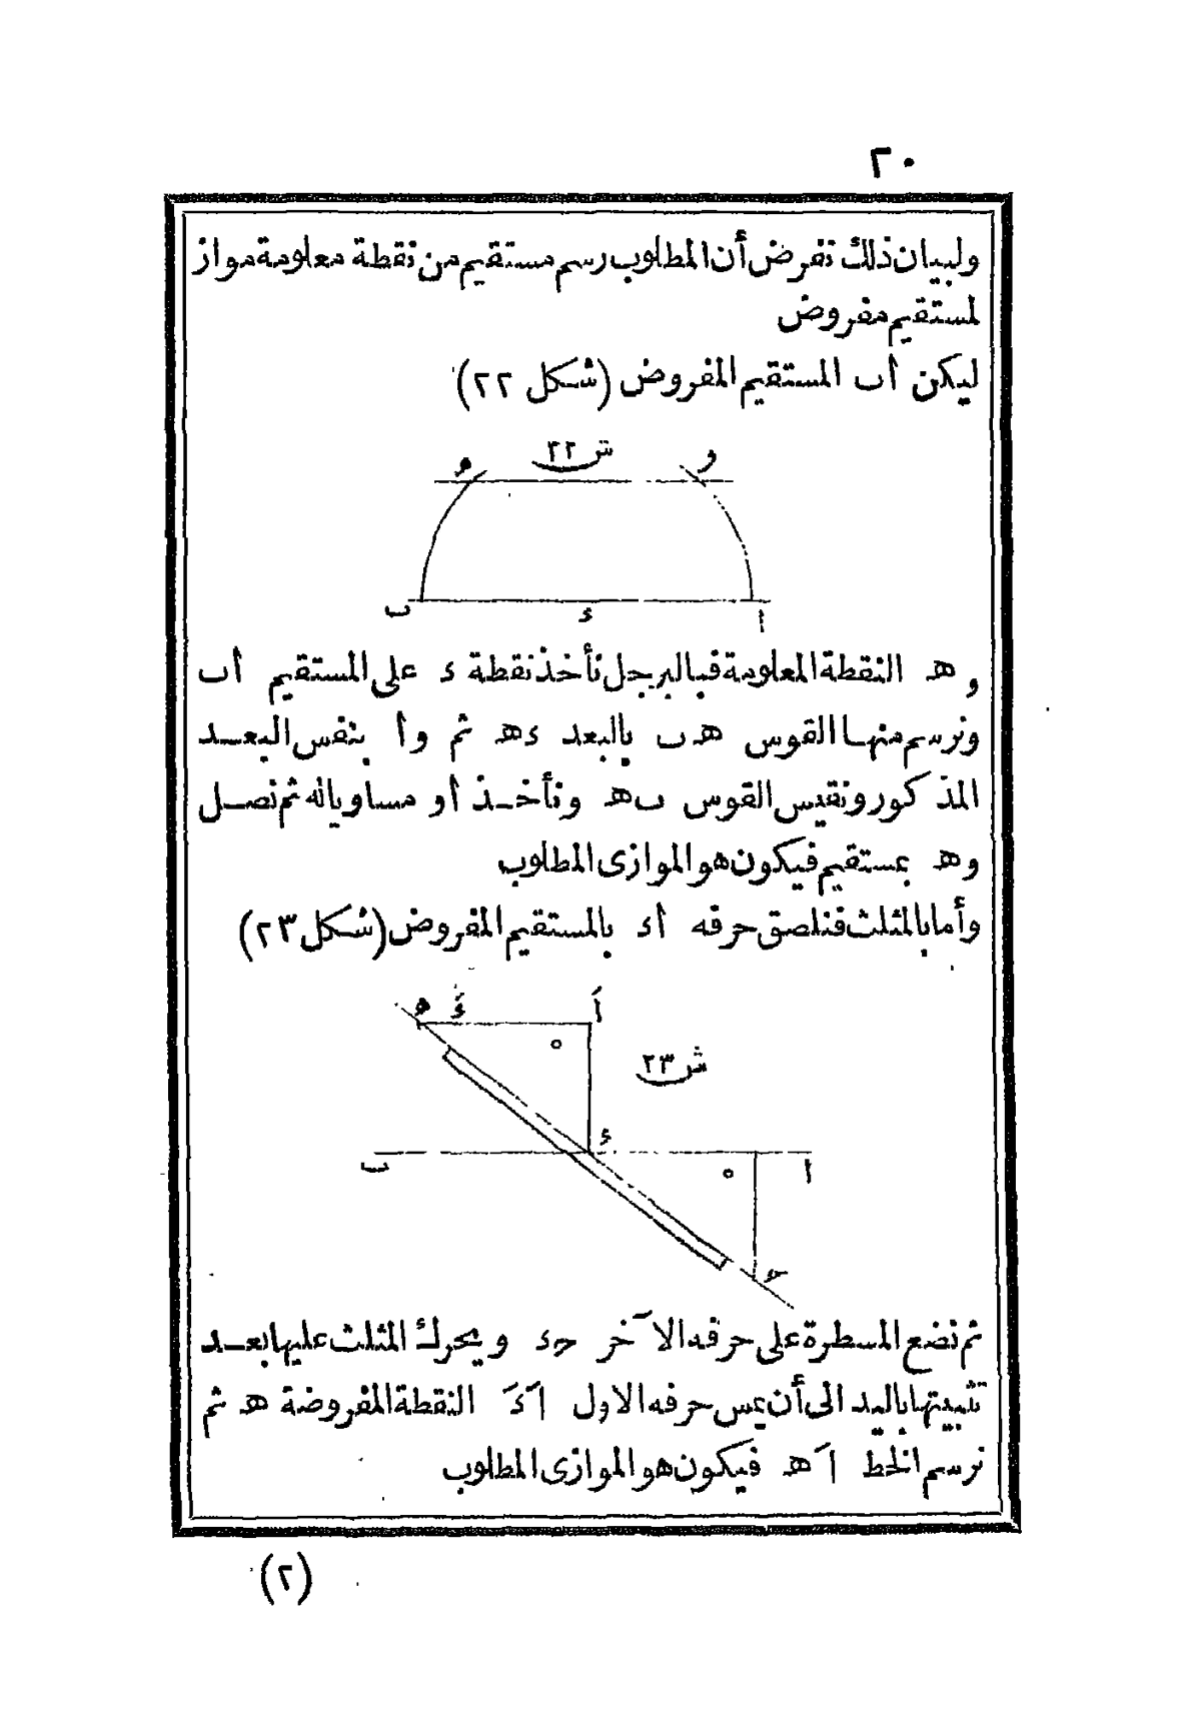 ٢٠
ولبيان ذلك نفرض أن المطلوب رسم مستقيم من نقطة معلومة مواز
لمستقيم مفروض
ليكن أب المستقيم المفروض (شكل ٢٢)
ش ٢٢
ه و
ب ء ا
و هـ النقطة المعلومة فبالبرجل نأخذ نقطة ء على المستقيم أب
ونرسم منها القوس هـ ب بالبعد ءهـ ثم وأ بنفس البعد
المذكور ونقيس القوس ب هـ ونأخذ أو مساويا له ثم نصل
وهـ بمستقيم فيكون هو الموازى المطلوب
وأما بالمثلث فنلصق حرفه أء بالمستقيم المفروض (شكل ٢٣)
ه ءَ اَ
ش ٢٣
ء
ب ا
ح
ثم نضع المسطرة على حرفه الآخر حء ويحرك المثلث عليها بعد
تثبيتها باليد الى أن يمس حرفه الاول اَءَ النقطة المفروضة هـ ثم
نرسم الخط اَهـ فيكون هو الموازى المطلوب
(٢)